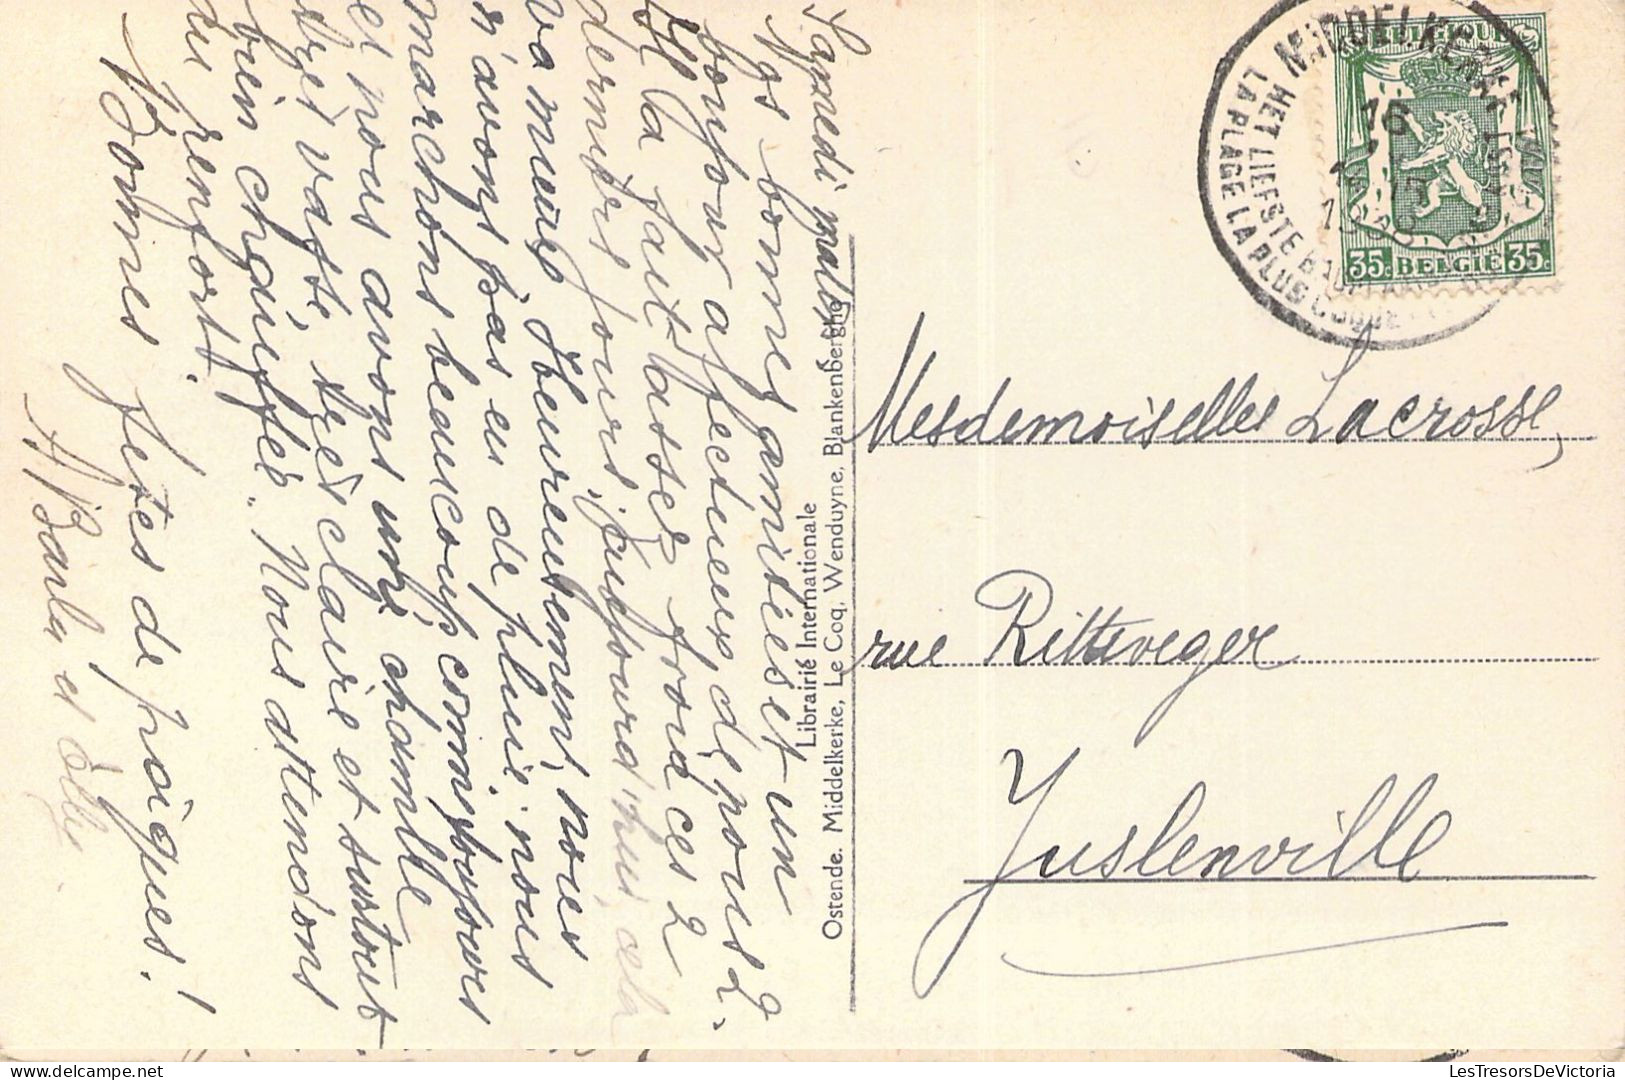 Samedi
Nos bonnes amitiés et un
bonjour affectueux de nous 2.
Il a fait assez froid ces 2
derniers jours, aujourd'hui, cela
va mieux. Heureusement, nous
n'avons pas eu de pluie; nous
marchons beaucoup comme toujours
et nous avons une chambre
très claire et surtout
bien chauffée. Nous attendons
du renfort.
Bonnes fêtes de Pâques!
et Elly
Librairie Internationale
Ostende. Middelkerke, Le Coq, Wenduyne, Blankenberghe
MIDDELKERKE
HET LIEFSTE BAD
LA PLAGE LA PLUS COQUETTE
BELGIQUE
35c BELGIE 35c
Mesdemoiselles Lacrosse,
rue Rittweger
Juslenville
LesTresorsDeVictoria